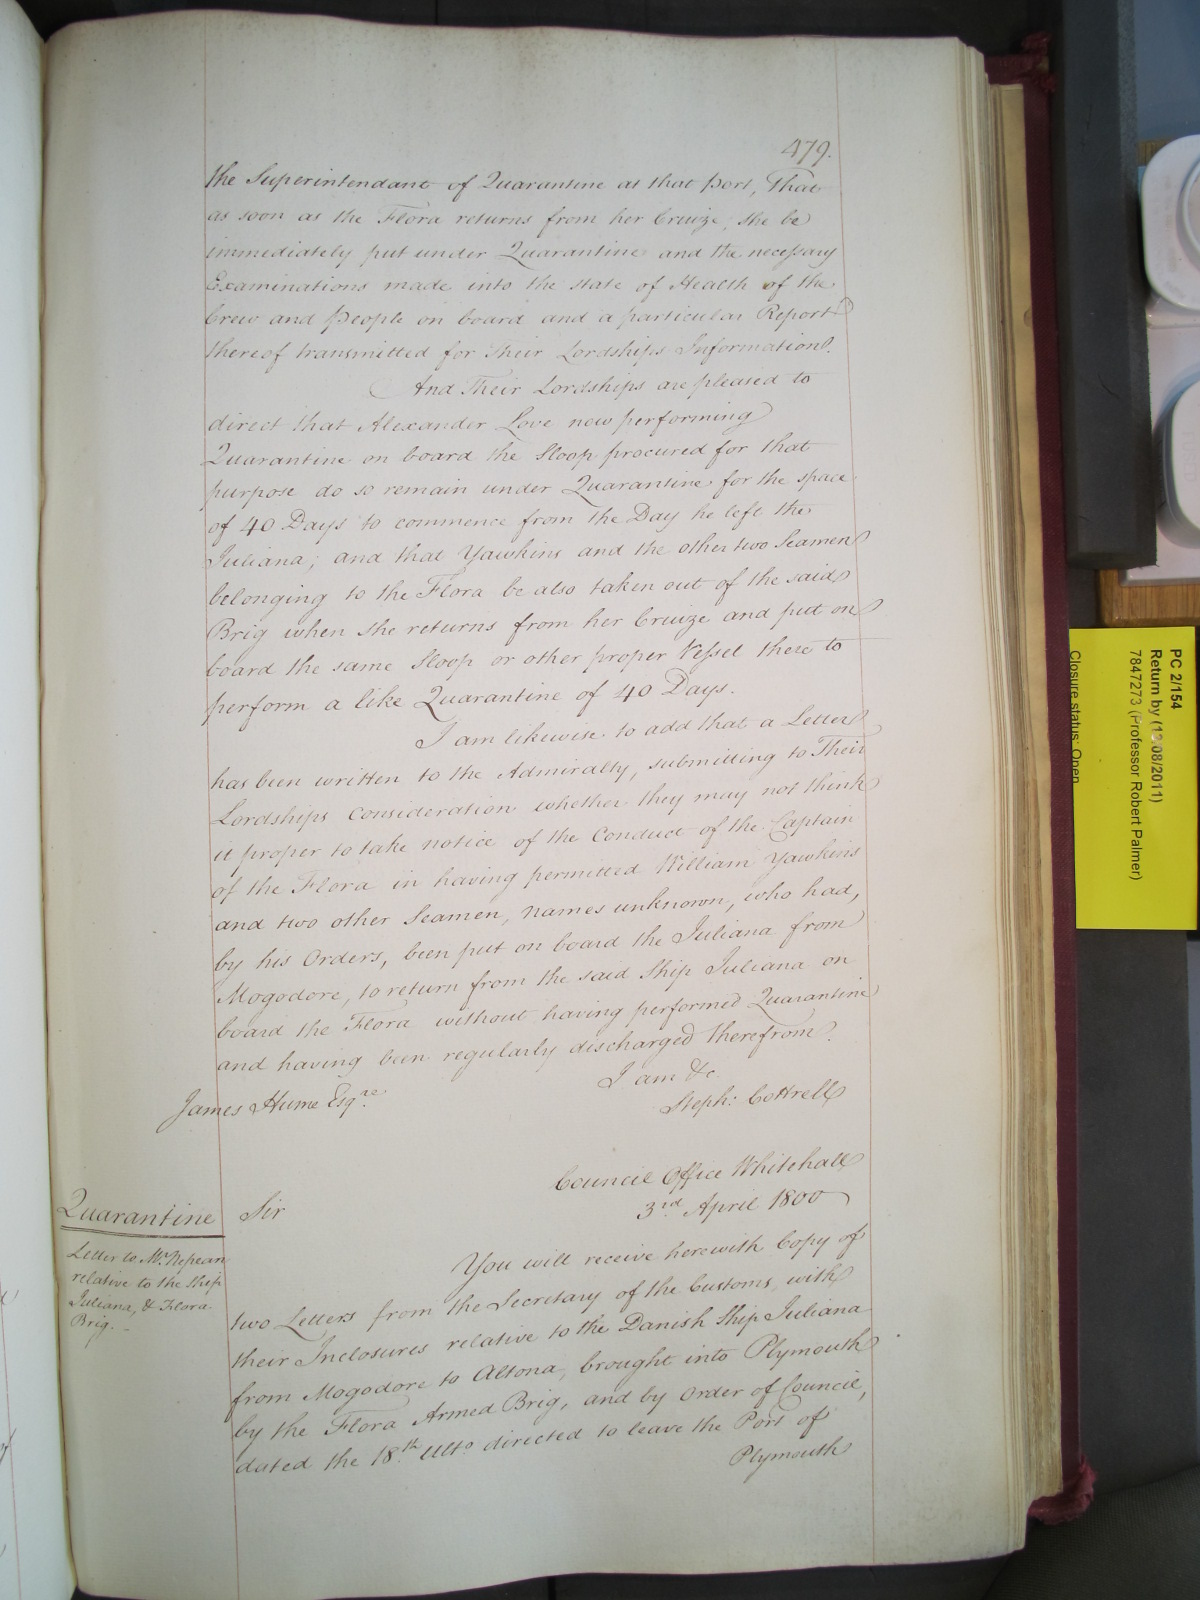 479.
the Superintendant of Quarantine at that Port, That
as soon as the Flora returns from her Cruize, she be
immediately put under Quarantine and the necessary
Examinations made into the state of Health of the
Crew and People on board and a particular Report
thereof transmitted for Their Lordships Information.
And Their Lordships are pleased to
direct that Alexander Love now performing
Quarantine on board the Sloop procured for that
purpose do so remain under Quarantine for the space
of 40 Days to commence from the Day he left the
Juliana; and that Yawkins and the other two Seamen
belonging to the Flora be also taken out of the said
Brig when she returns from her Cruize and put on
board the same Sloop or other proper Vessel there to
perform a like Quarantine of 40 Days.
I am likewise to add that a Letter
has been written to the Admiralty, submitting to Their
Lordships Consideration whether they may not think
it proper to take notice of the Conduct of the Captain
of the Flora in having permitted William Yawkins
and two other Seamen, names unknown, who had,
by his Orders, been put on board the Juliana from
Mogodore, to return from the said Ship Juliana on
board the Flora without having performed Quarantine
and having been regularly discharged therefrom.
I am &c
Steph: Cottrell
James Hume Esqre.
Council Office Whitehall
3rd April 1800
Quarantine
Letter to Mr. Nepean
relative to the Ship
Juliana, & Flora
Brig.
Sir
You will receive herewith Copy of
two Letters from the Secretary of the Customs, with
their Inclosures relative to the Danish Ship Juliana
from Mogodore to Altona, brought into Plymouth
by the Flora Armed Brig, and by Order of Council,
dated the 18th Ulto directed to leave the Port of
Plymouth
PC 2/154
Return by (12/08/2011)
7847273 (Professor Robert Palmer)
Closure status: Open